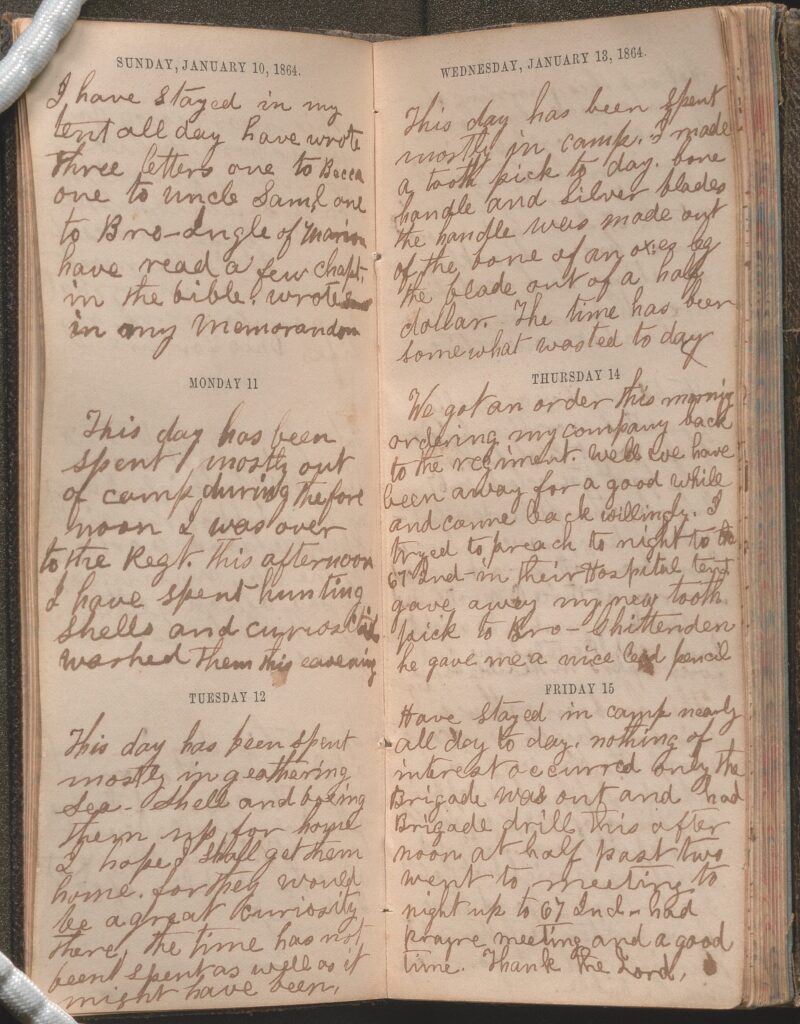 SUNDAY, JANUARY 10, 1864.
I have stayed in my
tent all day have wrote
Three letters one to Becca
one to uncle Saml, one
to Bro-Ingle of Marion
have read a few chapt.
in the bible. wrote
in my Memorandom
MONDAY 11
This day has been
spent mostly out
of camp, during the fore
noon I was over
to the Regt. this afternoon
I have spent hunting
shells and
washed Them this eavening
TUESDAY 12
This day has been spent
mostly in geathering
Sea-Shell and boxing
them up for home
I hope I shall get them
home. for they would
be a great curiosity
there, the time has not
been spent as well as it
might have been,
WEDNESDAY, JANUARY 13, 1864.
This day has been spent
mostly in camp. I made
a tooth pick to day. bone
handle and Silver blades
the handle was made out
of the bone of an leg
the blade out of a half
dollar. The time has been
somewhat wasted to day
THURSDAY 14
We got an order this morning
ordering my company back
to the regiment. well we have
been away for a good while
and came back willingly. I
tryed to preach to night to the
67 Ind-in their Hospital tent
gave away my new tooth
pick to Bro-Chittenden
he gave me a nice lead pencil
FRIDAY 15
Have stayed in camp nearly
all day to day. nothing of
interest occurred only the
Brigade was out and had
Brigade drill this after
noon at half past two
went to meeting to
night up to 67 Ind-had
prayre meeting and a good
time. Thank the Lord,